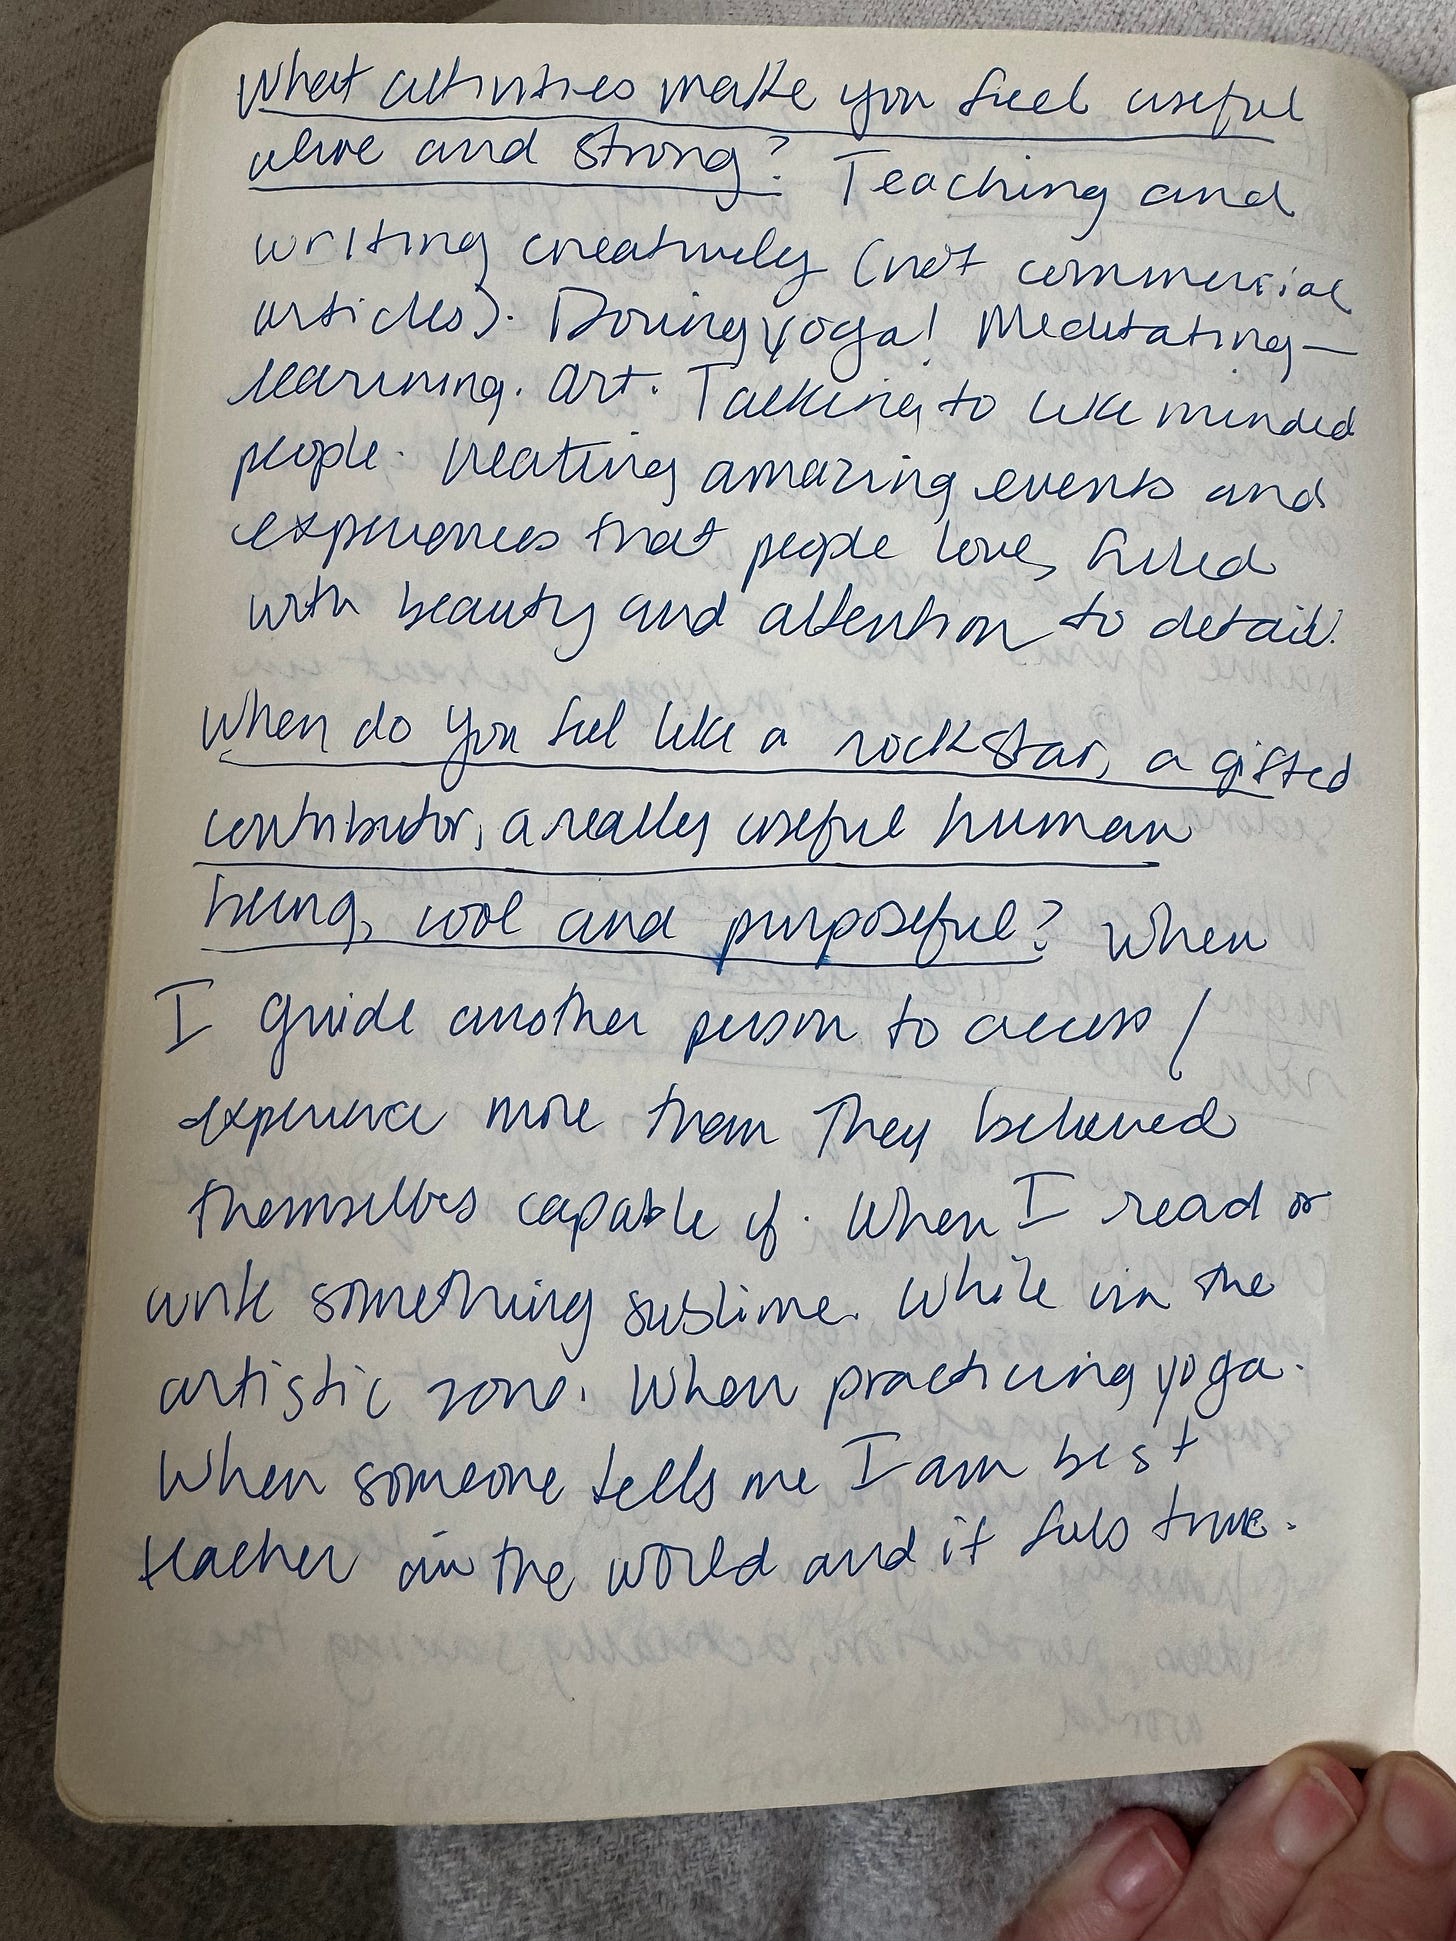 What activities make you feel useful
alive and strong? Teaching and
writing creatively (not commercial
articles). Doing yoga! Meditating—
learning. Art. Talking to like minded
people. Creating amazing events and
experiences that people love, filled
with beauty and attention to detail.
When do you feel like a rockstar, a gifted
contributor, a really useful human
being, cool and purposeful? When
I guide another person to access /
experience more than they believed
themselves capable of. When I read or
write something sublime. While in the
artistic zone. When practicing yoga.
When someone tells me I am best
teacher in the world and it feels true.